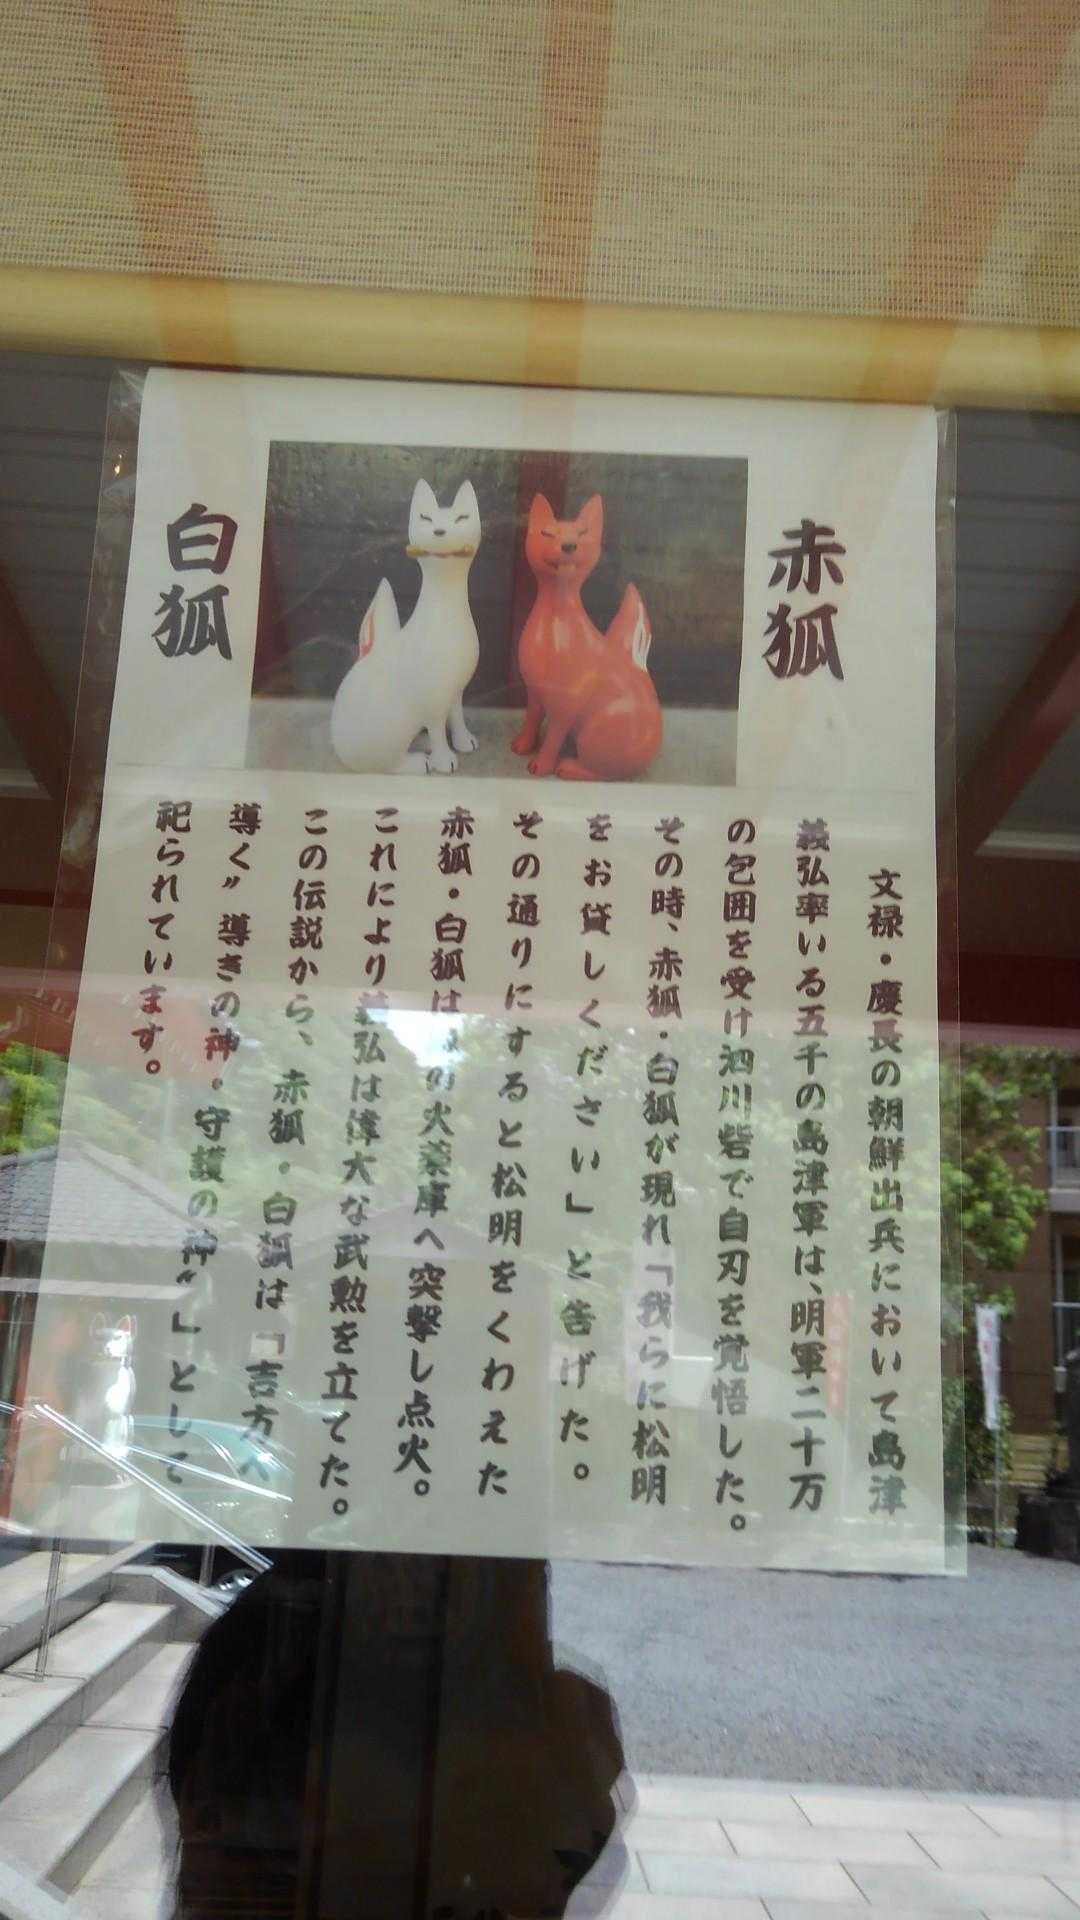 赤狐
白狐
文禄・慶長の朝鮮出兵において島津
義弘率いる五千の島津軍は、明軍二十万
の包囲を受け泗川砦で自刃を覚悟した。
その時、赤狐・白狐が現れ「我らに松明
をお貸しください」と告げた。
その通りにすると松明をくわえた
赤狐・白狐は の火薬庫へ突撃し点火。
これにより義弘は偉大な武勲を立てた。
この伝説から、赤狐・白狐は「吉方へ
導く〃導きの神・守護の神〃」として
祀られています。